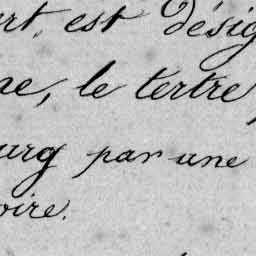 rt, est désig
ne, le tertre
urg par une
oire.